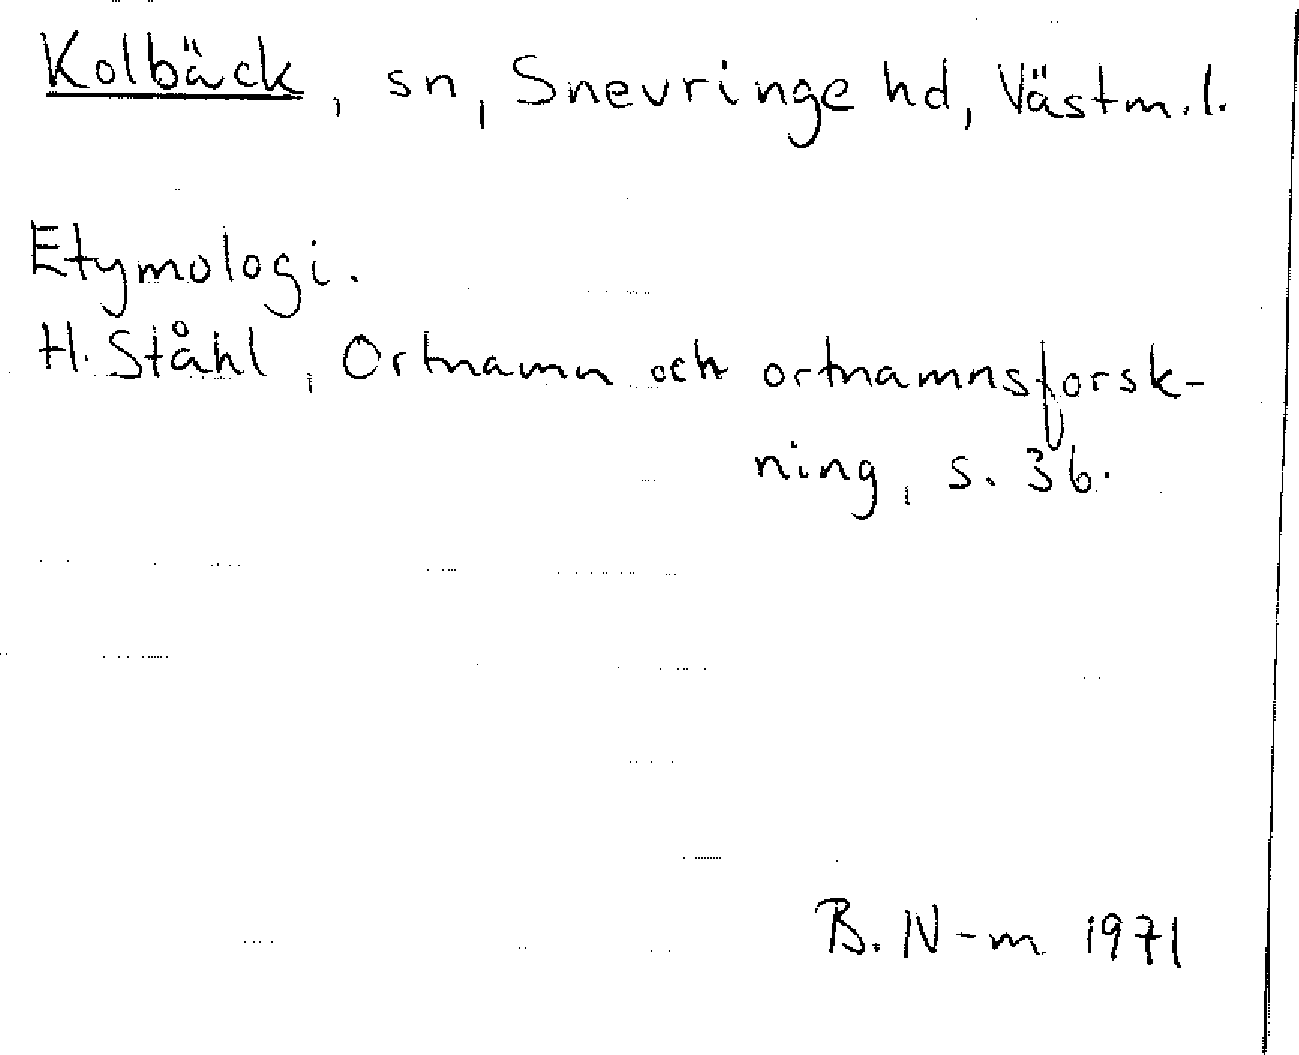 Kolbäck, sn, Snevringe hd, Västm. l.
Etymologi.
H. Ståhl, Ortnamn och ortnamnsforsk-
ning, s. 36.
B. N-m 1971